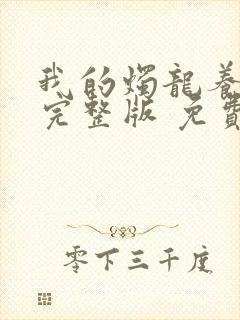 我的燭龍養
完整版 免費
零下三千度